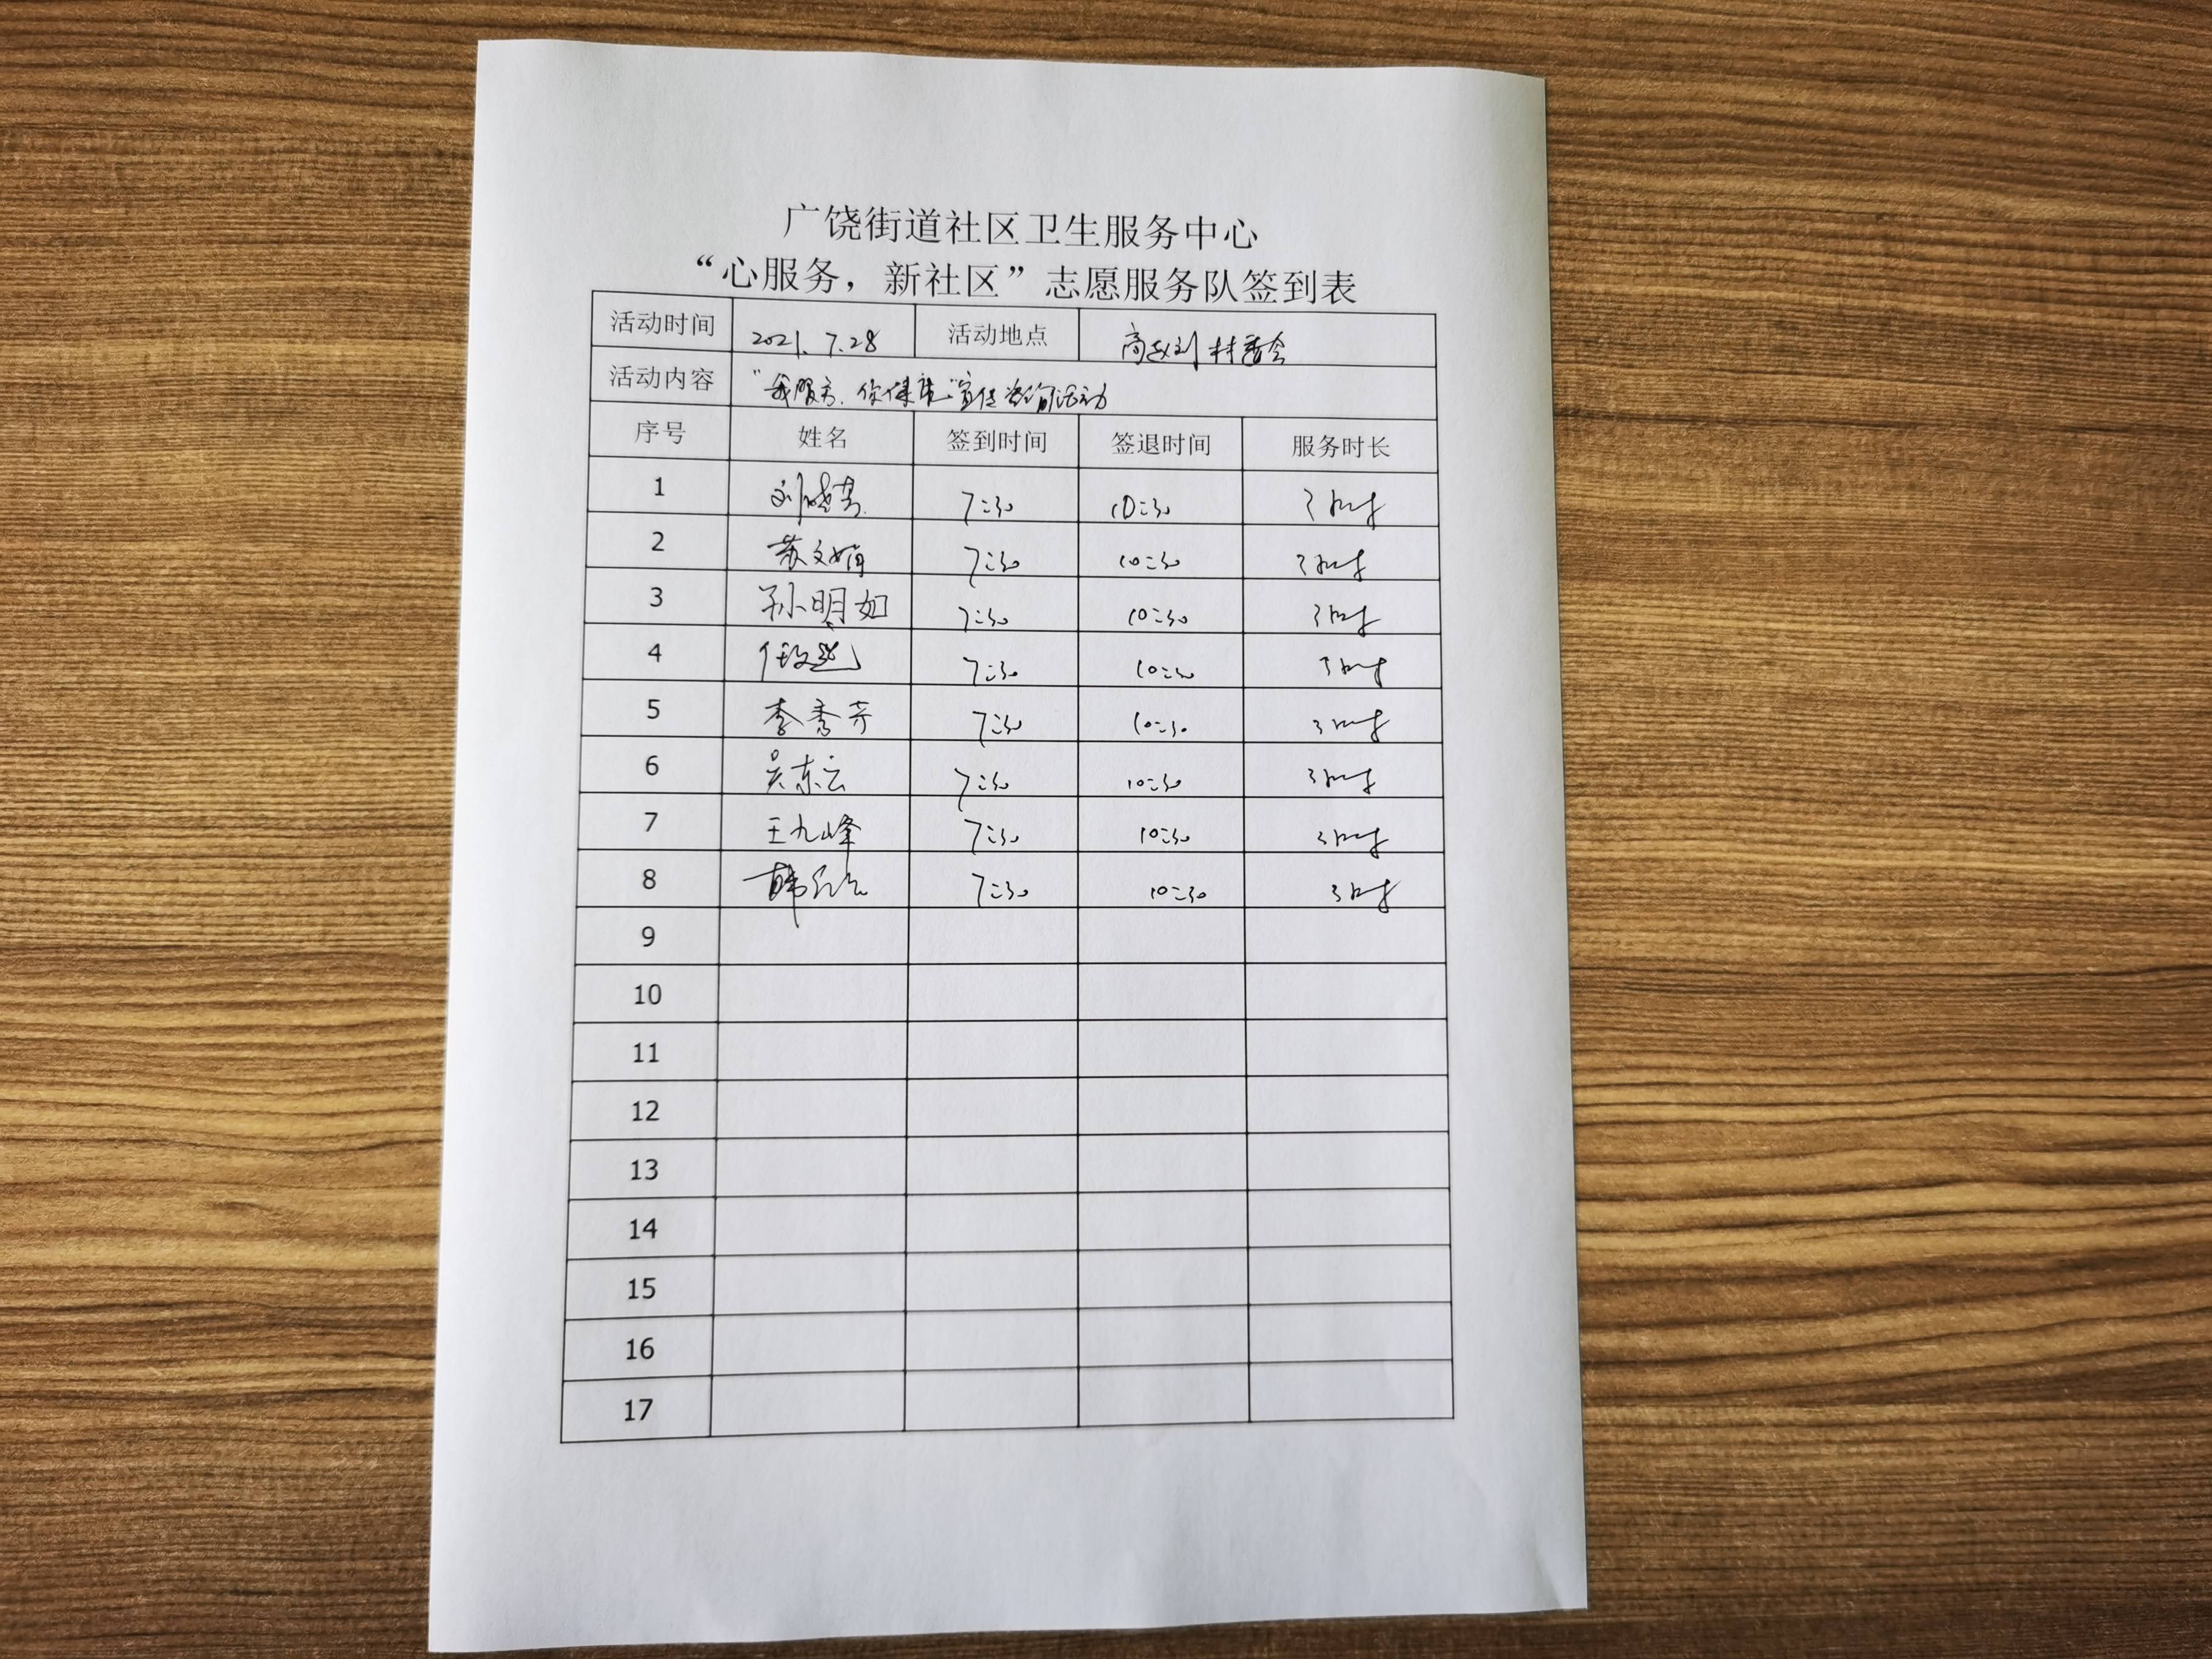 广饶街道社区卫生服务中心
“心服务，新社区”志愿服务队签到表
活动时间 2021.7.28 活动地点 高赵刘村委会
活动内容 “我服务.你健康”宣传咨询活动
序号 姓名 签到时间 签退时间 服务时长
1 刘 7:30 10:30 3小时
2 苏文娟 7:30 10:30 3小时
3 孙明如 7:30 10:30 3小时
4 7:30 10:30 3小时
5 李秀芹 7:30 10:30 3小时
6 吴东云 7:30 10:30 3小时
7 王九峰 7:30 10:30 3小时
8 韩 7:30 10:30 3小时
9
10
11
12
13
14
15
16
17